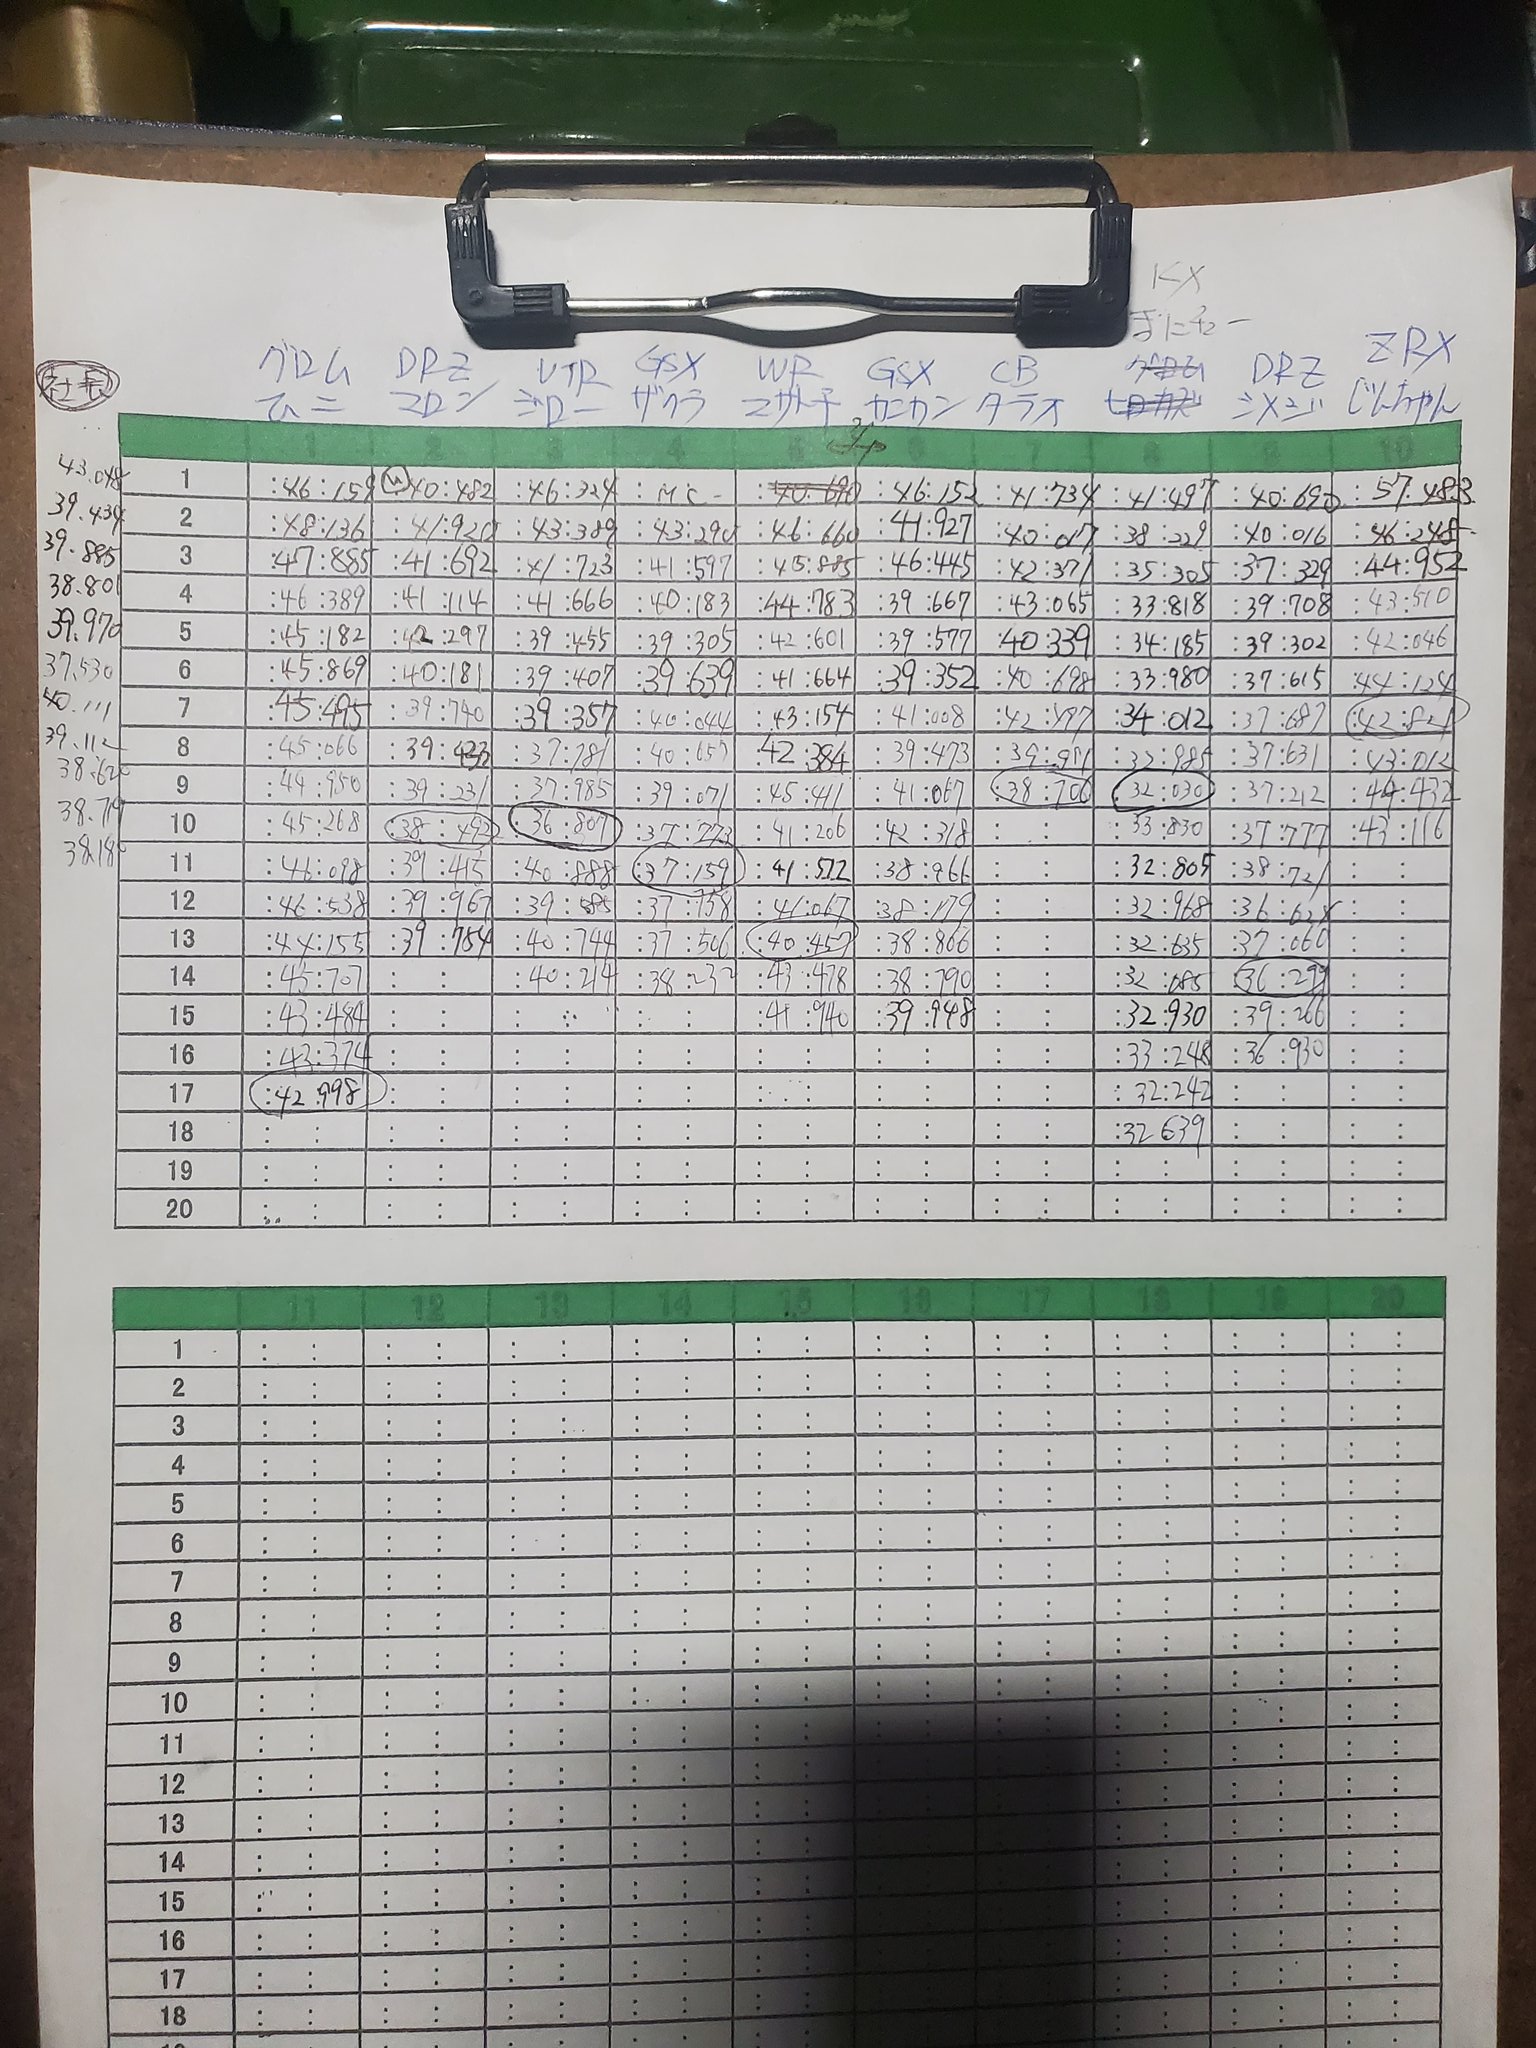 KX
まにチュー
グロム DRZ VTR GSX WR GSX CB グロム DRZ ZRX
社長 マロン ジロー ザクラ マサト子 カニカン タラオ シメジ じんちゃん
1 2 3 4 5 6 7 8 9 10
43.048 1 :46:159 40:482 :46:324 :MC- 40:690 :46:152 :41:734 :41:497 :40:690 :57:483
39.434 2 :48:136 :41:920 :43:389 :43:290 :46:660 41:927 :40:017 :38:229 :40:016 :46:248
39.885 3 :47:885 :41:692 :41:723 :41:597 :45:885 :46:445 :42:371 :35:305 :37:329 :44:952
38.801 4 :46:389 :41:114 :41:666 :40:183 :44:783 :39:667 :43:065 :33:818 :39:708 :43:510
39.970 5 :45:182 :42:297 :39:455 :39:305 :42:601 :39:577 :40:339 :34:185 :39:302 :42:046
37.530 6 :45:869 :40:181 :39:407 :39:639 :41:664 :39:352 :40:698 :33:980 :37:615 :44:124
40.111 7 :45:495 :39:740 :39:357 :40:044 :43:154 :41:008 :42:497 :34:012 :37:687 :42:821
39.112 8 :45:066 :39:423 :37:781 :40:657 :42:384 :39:473 :39:981 :32:985 :37:631 :43:012
38.620 9 :44:950 :39:231 :37:985 :39:071 :45:411 :41:067 :38:706 :32:030 :37:212 :44:432
38.719 10 :45:268 :38:492 :36:807 :37:773 :41:206 :42:318 : : :33:830 :37:777 :43:116
38.180 11 :46:098 :39:415 :40:888 :37:159 :41:512 :38:966 : : :32:805 :38:721 : :
12 :46:538 :39:967 :39:585 :37:758 :41:067 :38:179 : : :32:968 :36:624 : :
13 :44:155 :39:784 :40:744 :37:506 :40:457 :38:806 : : :32:635 :37:060 : :
14 :45:707 : : :40:214 :38:232 :43:478 :38:790 : : :32:085 :36:299 : :
15 :43:484 : : : : : : :41:940 :39:948 : : :32:930 :39:266 : :
16 :43:374 : : : : : : : : : : : : :33:248 :36:930 : :
17 :42:998 : : : : : : : : : : : : :32:242 : : : :
18 : : : : : : : : : : : : : : :32 639 : : : :
19 : : : : : : : : : : : : : : : : : : : :
20 : : : : : : : : : : : : : : : : : : : :
11 12 13 14 15 16 17 18 19 20
1 : : : : : : : : : : : : : : : : : : : :
2 : : : : : : : : : : : : : : : : : : : :
3 : : : : : : : : : : : : : : : : : : : :
4 : : : : : : : : : : : : : : : : : : : :
5 : : : : : : : : : : : : : : : : : : : :
6 : : : : : : : : : : : : : : : : : : : :
7 : : : : : : : : : : : : : : : : : : : :
8 : : : : : : : : : : : : : : : : : : : :
9 : : : : : : : : : : : : : : : : : : : :
10 : : : : : : : : : : : : : : : : : : : :
11 : : : : : : : : : : : : : : : : : : : :
12 : : : : : : : : : : : : : : : : : : : :
13 : : : : : : : : : : : : : : : : : : : :
14 : : : : : : : : : : : : : : : : : : : :
15 : : : : : : : : : : : : : : : : : : : :
16 : : : : : : : : : : : : : : : : : : : :
17 : : : : : : : : : : : : : : : : : : : :
18 : : : : : : : : : : : : : : : : : : : :